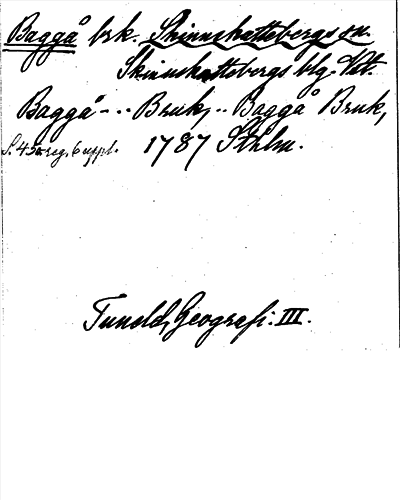 Baggå brk. Skinnskattebergs sn.
Skinnskattebergs blg. Vstm.
Baggå - .. Bruk, .. Baggå Bruk,
S. 45 reg. 6 uppl. 1787 Sthlm.
Tuneld, Geografi. III.